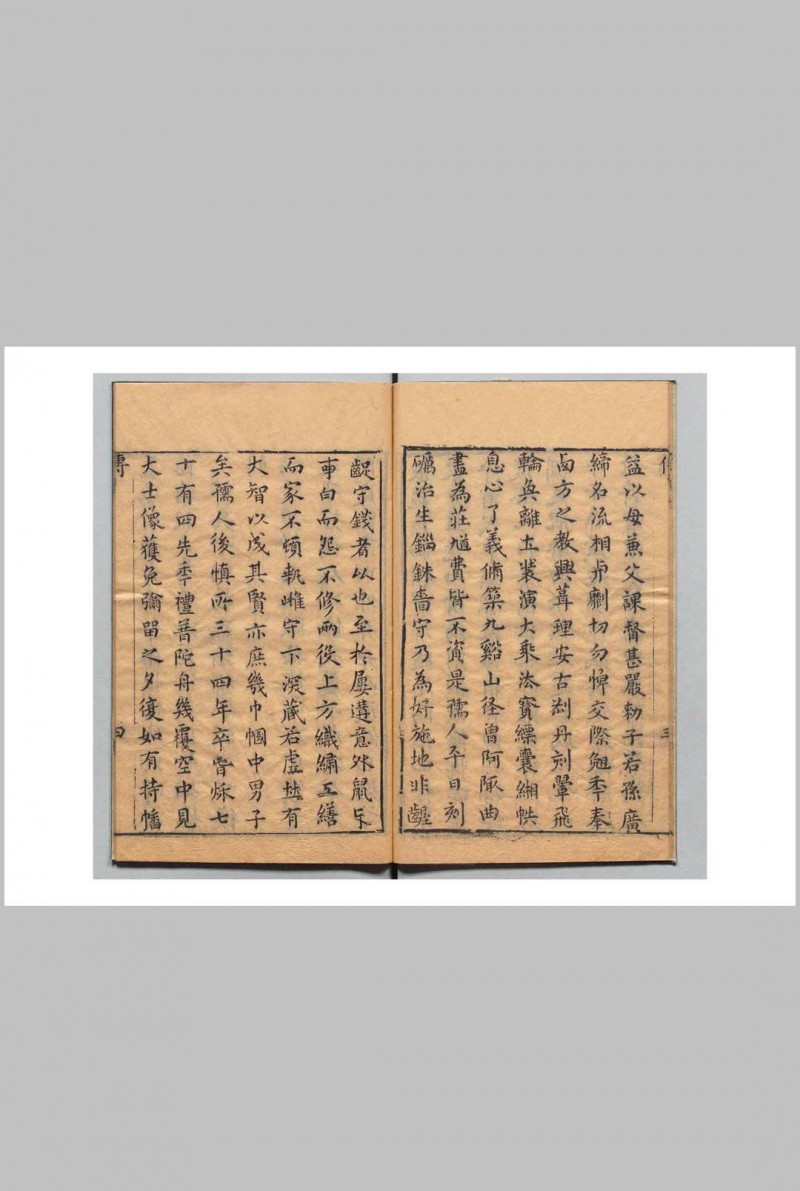 傳
三
益以母蕭父課督甚嚴勑子若孫廣
締名流相与劘切勿憚交際匏季奉
卥方之教興葺理安古刹丹刻翬飛
輪奐離立裝演大乘法寶縹囊緗帙
息心了義俻築九谿山径曽阿陬曲
盡為莊馗費皆不資是孺人平日刻
礪治生錙銖嗇守乃為好施地非齷
齪守錢者以也至於屢遘意外鼠斥
而向而怨不修兩役上方織繡工繕
而家不煩執雌守下深藏若虛盐有
大智以成其賢亦庶幾巾幗中男子
矣孺人後慎所三十四年卒嘗烁七
十有四先季禮普陀舟幾覆空中見
大士像獲免彌留之夕復如有持幡
傳
四